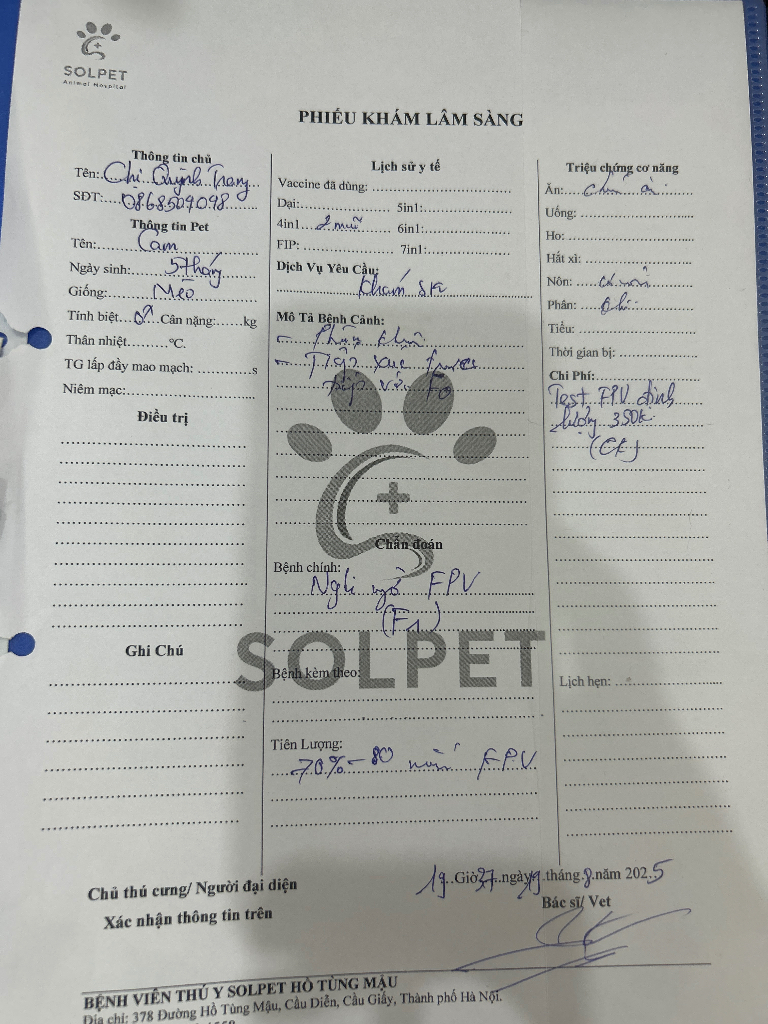 SOLPET
Animal Hospital
PHIẾU KHÁM LÂM SÀNG
Thông tin chủ
Tên: Chị Quỳnh Trang
SĐT: 0868509098
Thông tin Pet
Tên: Cam
Ngày sinh: 5 tháng
Giống: Mèo
Tính biệt ♂ Cân nặng:......kg
Thân nhiệt..........°C.
TG lấp đầy mao mạch: ............s
Niêm mạc:
Điều trị
Ghi Chú
Lịch sử y tế
Vaccine đã dùng:
Dại: 5in1:
4in1 2 mũi 6in1:
FIP: 7in1:
Dịch Vụ Yêu Cầu:
Khám SK
Mô Tả Bệnh Cảnh:
- Phòng
- Tiếp xúc trực
tiếp với F0
Chẩn đoán
Bệnh chính:
Nghi ngờ FPV
(F1)
SOLPET
Bệnh kèm theo:
Tiên Lượng:
70% - 80 FPV
Triệu chứng cơ năng
Ăn:
Uống:
Ho:
Hắt xì:
Nôn:
Phân:
Tiểu:
Thời gian bị:
Chi Phí:
Test FPV định
lượng 350k
(CK)
Lịch hẹn:
19 Giờ 27 ngày 19 tháng 8 năm 2025
Chủ thú cưng/ Người đại diện
Xác nhận thông tin trên
Bác sĩ/ Vet
BỆNH VIỆN THÚ Y SOLPET HỒ TÙNG MẬU
Địa chỉ: 378 Đường Hồ Tùng Mậu, Cầu Diễn, Cầu Giấy, Thành phố Hà Nội.